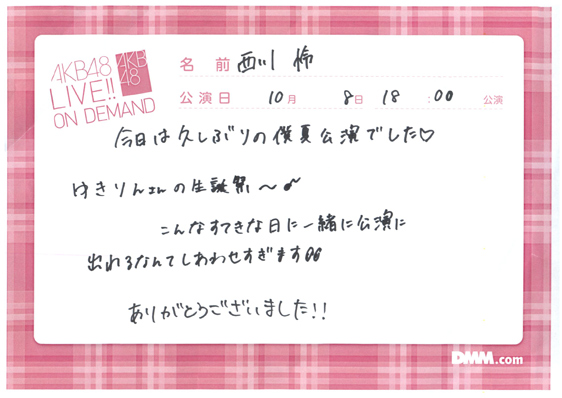 AKB48
LIVE!!
ON DEMAND
AKB
48
名前 西川 怜
公演日 10月 8日 18:00 公演
今日は久しぶりの僕夏公演でした♡
ゆきりんさんの生誕祭〜♪
こんなすてきな日に一緒に公演に
出れるなんてしあわせすぎます
ありがとうございました!!
DMM.com